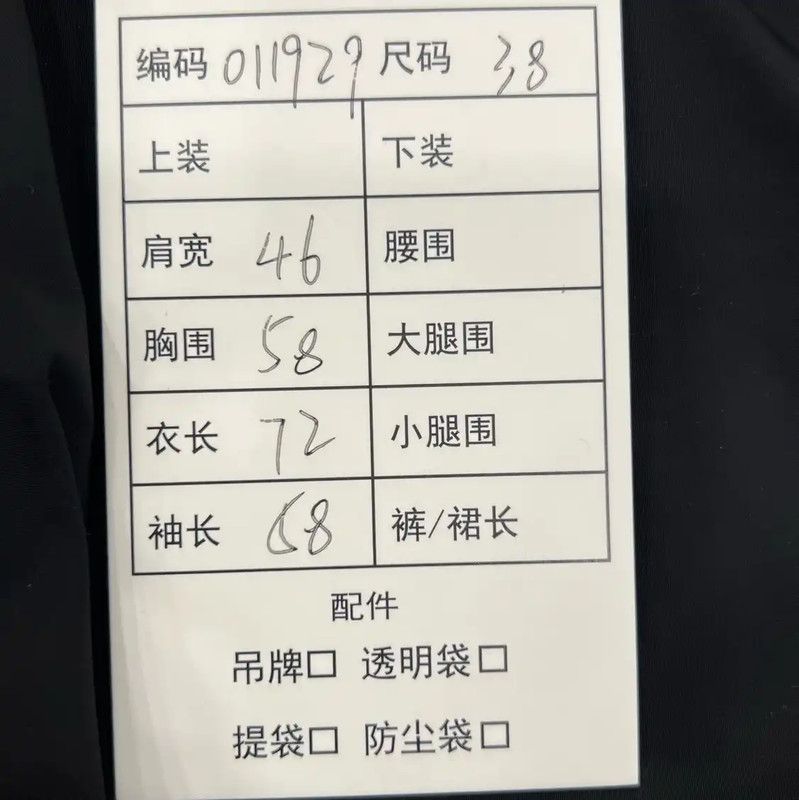 编码 011929 尺码 38
上装 下装
肩宽 46 腰围
胸围 58 大腿围
衣长 72 小腿围
袖长 68 裤/裙长
配件
吊牌□ 透明袋□
提袋□ 防尘袋□